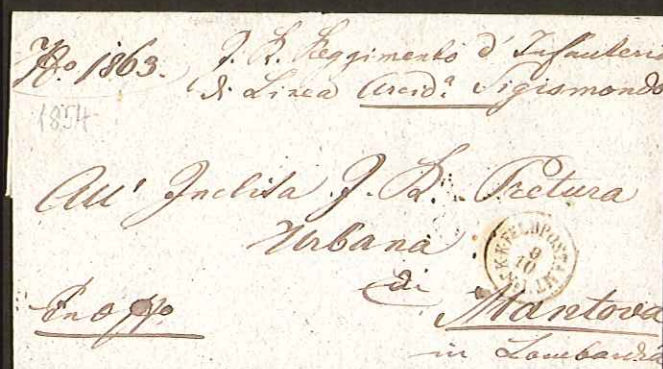 No. 1863.
I. R. Reggimento d'Infanteria
di Linea Arcid.a Sigismondo
1854
All' Inclita I. R. Pretura
Urbana
di
Mantova
in Lombardia
K.K. FELDPOSTAMT No
9
10